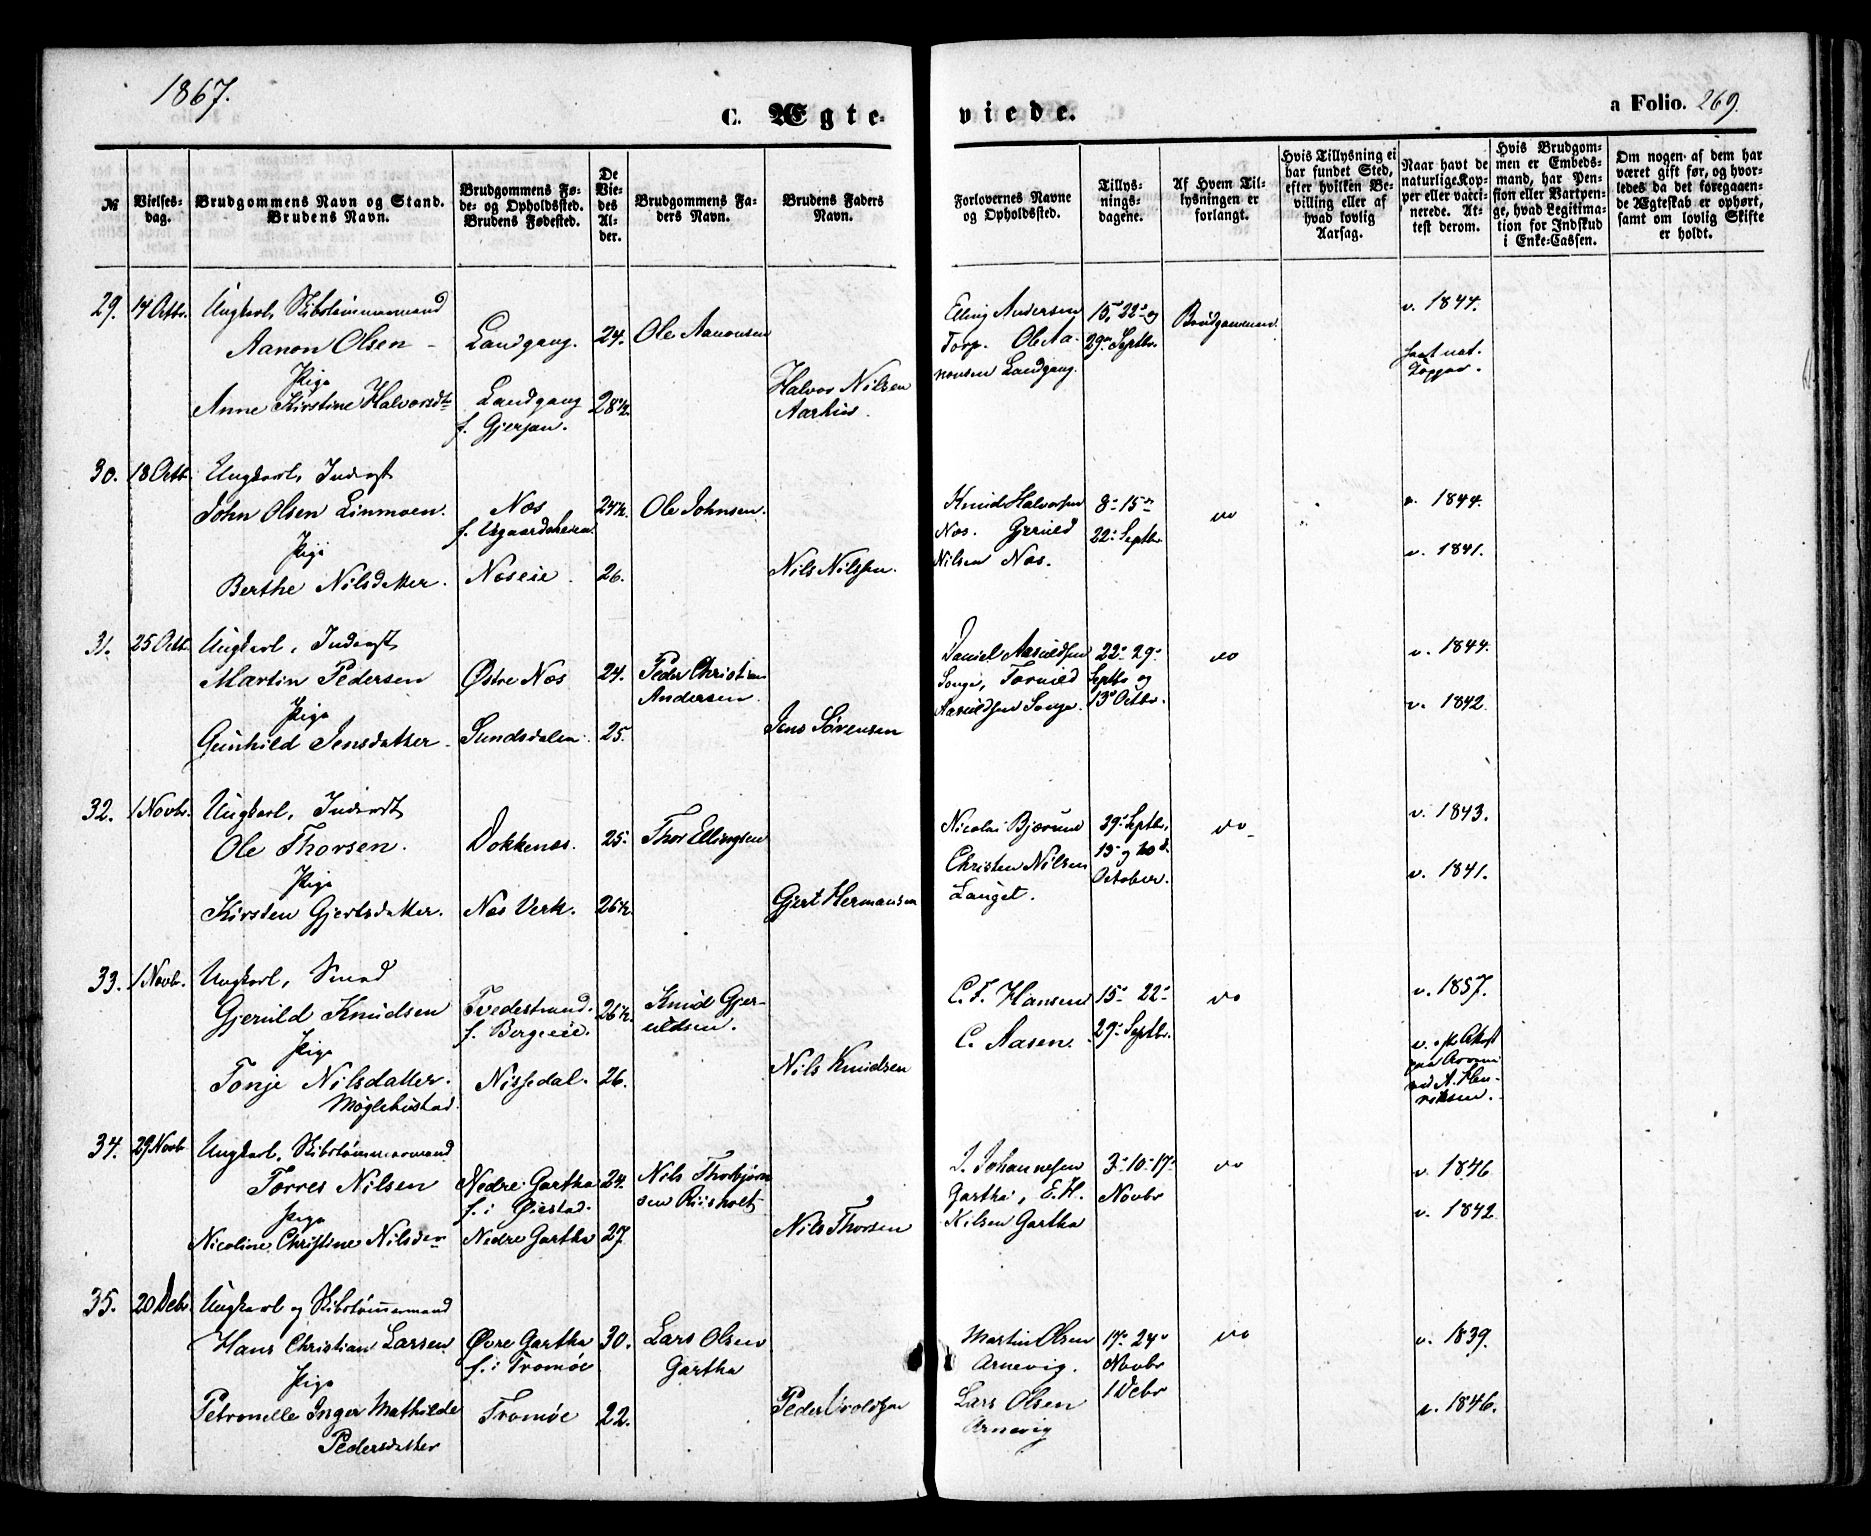 1867.
C. Ægteviede.
a Folio. 269.
№
Vielsesdag.
Brudgommens Navn og Stand. Brudens Navn.
Brudgommens Føde- og Opholdssted. Brudens Fødested.
De Viedes Alder.
Brudgommens Faders Navn.
Brudens Faders Navn.
Forlovernes Navne og Opholdssted.
Tillysningsdagene.
Af Hvem Tillysningen er forlangt.
Hvis Tillysning ei har fundet Sted, efter hvilken Bevilling eller af hvad lovlig Aarsag.
Naar havt de naturlige Kopper eller vaccinerede. Attest derom.
Hvis Brudgommen er Embedsmand, har Pension eller Vartpenge, hvad Legitimation for Indskud i Enke-Cassen.
Om nogen af dem har været gift før, og hvorledes da det foregaaende Ægteskab er ophørt, samt om lovlig Skifte er holdt.
29. 14 Octb. Ungkarl, Skibstømmermand
Aanon Olsen Landgang. 24. Ole Aanonsen
Pige
Anne Kirstine Halvorsdtr Landgang 28½. Halvor Nilsen
f. Gjersøn. Aarhus.
Elling Andersen 15, 22 og Brudgommen v. 1844.
Torp. Ole Aa- 29 Septbr.
nonsen Landgang. havt nat.
Kopper.
30. 18 Octb. Ungkarl, Inderst
John Olsen Linmoen. Næs 24½. Ole Johnsen.
f. Vegaardsheien.
Pige
Berthe Nilsdatter. Næseie. 26. Nils Nilssen.
Knud Halvorsen 8 15 do v. 1844.
Næs. Gjeruld 22 Septbr.
Nilsen Næs. v. 1841.
31. 25 Octb. Ungkarl, Inderst
Martin Pedersen Østre Næs 24. Peder Christian
Andersen.
Pige
Gunhild Jensdatter Sundsdalen 25. Jens Sørensen
Daniel Aasuldsen 22 29 do v. 1844.
Songe, Toruld Septbr og
Aasuldsen Songe. 13 Octbr. v. 1842.
32. 1 Novbr. Ungkarl, Inderst
Ole Thorsen. Dokkenæs. 25. Thor Ellingsen
Pige
Kirsten Gjertsdatter. Næs Verk. 26½. Gjert Hermansen
Nicolai Bjorund 29 Septbr, do v. 1843.
Christen Nilsen 13 og 20
Langet. October. v. 1841.
33. 1 Novb. Ungkarl, Smed
Gjeruld Knudsen Tvedestrand. 26½. Knud Gjer-
f. Bergeeie. uldsen.
Pige
Tonje Nilsdatter. Nissedal. 26. Nils Knudsen
Møglebustad.
C. F. Hansen 15 22 do v. 1857.
C. Aasen. 29 Septbr. v. Attest
ved A. Hen-
riksen.
34. 29 Novb Ungkarl, Skibstømmermand
Torres Nilsen Nedre Gartha 24. Nils Thorbjørn
f. i Øiestad. sen Riisholt
Pige
Nicoline Christine Nilsdtr Nedre Gartha 27. Nils Thorsen
J. Johannesen 3 10 17 do v. 1846
Gartha, E. H. Novbr
Nilsen Gartha v. 1842
35. 20 Debr. Ungkarl og Skibstømmermand
Hans Christian Larsen Øvre Gartha 30. Lars Olsen
f. i Tromøe Gartha
Pige
Petronelle Inger Mathilde Tromøe 22. Peder Uroldsen
Pedersdatter
Martin Olsen 17 24 do v. 1839.
Arnevig. Novbr
Lars Olsen 1 Debr v. 1846.
Arnevig